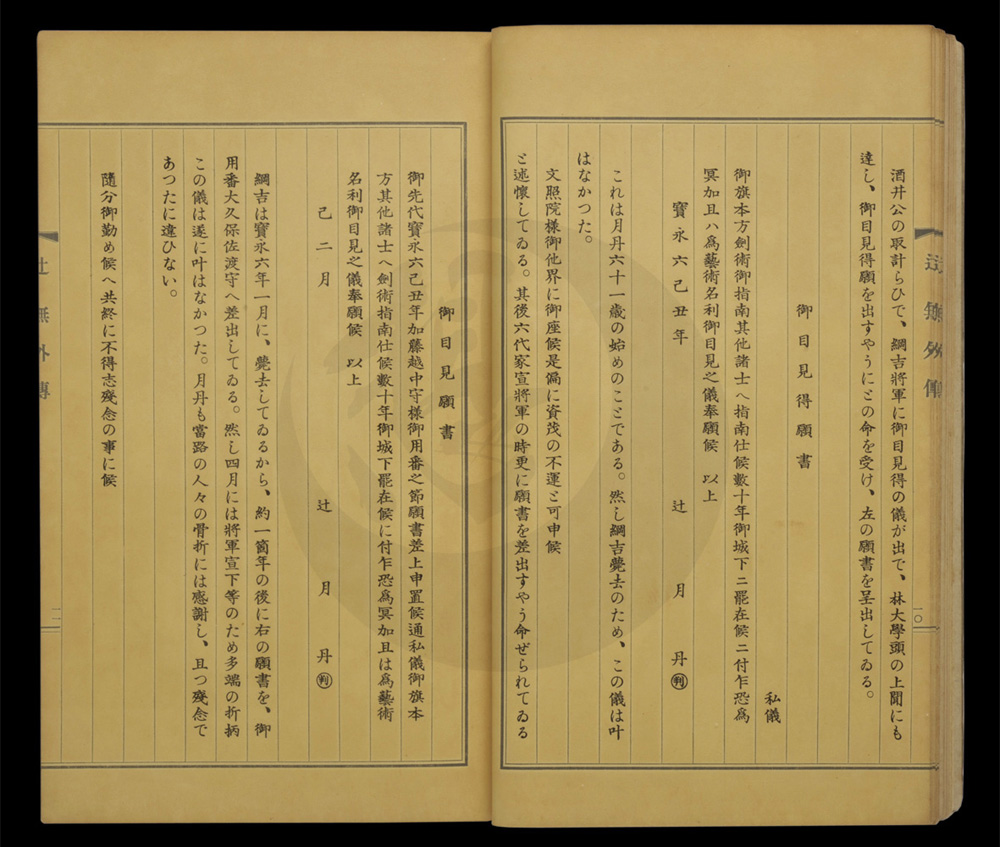 酒井公の取計らひで、綱吉將軍に御目見得の儀が出で、林大學頭の上聞にも
達し、御目見得願を出すやうにとの命を受け、左の願書を呈出してゐる。
御目見得願書
私儀
御旗本方劍術御指南其他諸士へ指南仕候數十年御城下ニ罷在候ニ付乍恐爲
冥加且ハ爲藝術名利御目見之儀奉願候 以上
寳永六己丑年 辻月丹 判
これは月丹六十一歳の始めのことである。然し綱吉薨去のため、この儀は叶
はなかつた。
文照院樣御他界に御座候是偏に資茂の不運と可申候
と述懷してゐる。其後六代家宣將軍の時更に願書を差出すやう命ぜられてゐる
一〇
辻無外傳
御目見願書
御先代寳永六己丑年加藤越中守樣御用番之節願書差上申置候通私儀御旗本
方其他諸士へ劍術指南仕候數十年御城下罷在候に付乍恐爲冥加且は爲藝術
名利御目見之儀奉願候 以上
己二月 辻月丹 判
綱吉は寳永六年一月に、薨去してゐるから、約一箇年の後に右の願書を、御
用番大久保佐渡守へ差出してゐる。然し四月には將軍宣下等のため多端の折柄
この儀は遂に叶はなかつた。月丹も當路の人々の骨折には感謝し、且つ殘念で
あつたに違ひない。
隨分御勤め候へ共終に不得志殘念の事に候
辻無外傳
一一